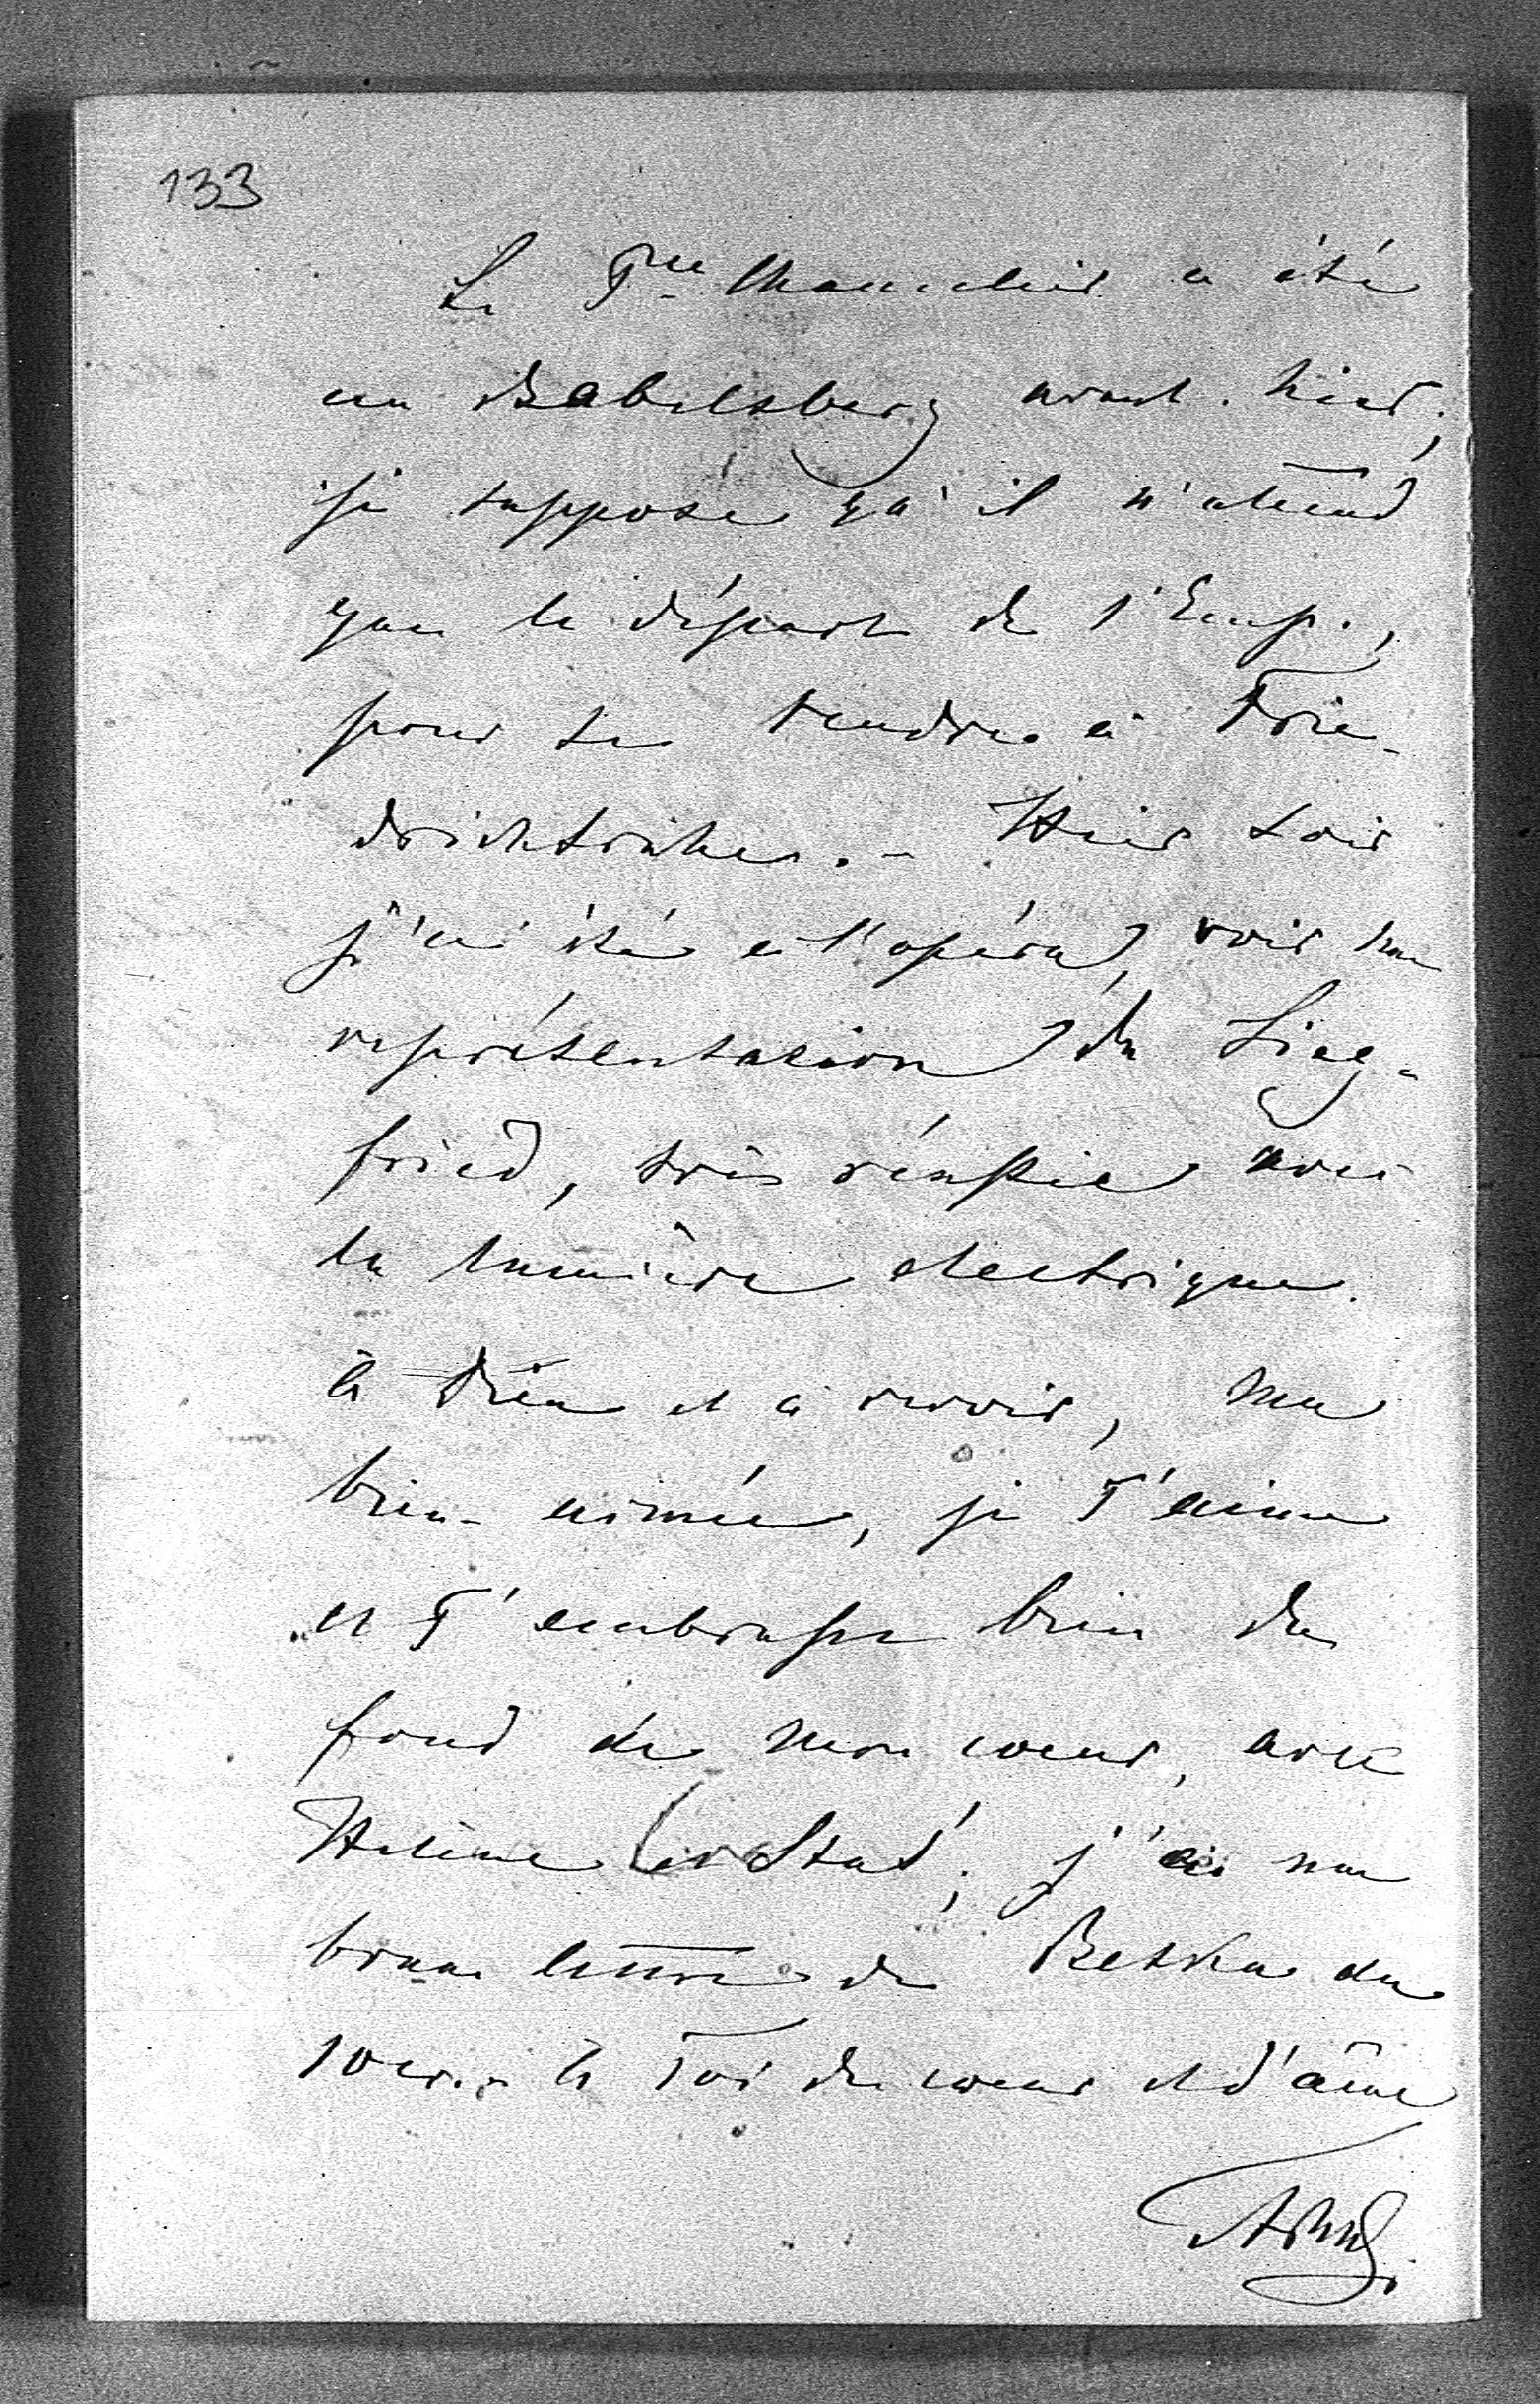 133
Le Pce Chancelier a été
au Babelsberg avant-hier;
je suppose qu'il n'attend
que le départ de l'Emp.,
pour se rendre à Frie-
drichsruhe. - Hier soir
j'ai été à l'opéra, voir une
représentation du Sieg-
fried, très réussie avec
la lumière electrique.
à Dieu et à revoir, ma
bien-aimée, je T'aime
et T'embrasse bien du
fond de mon cœur, avec
Hélène j'ai une
bonne lettre de Betska du
10 cr. - à Toi de cœur et d'âme